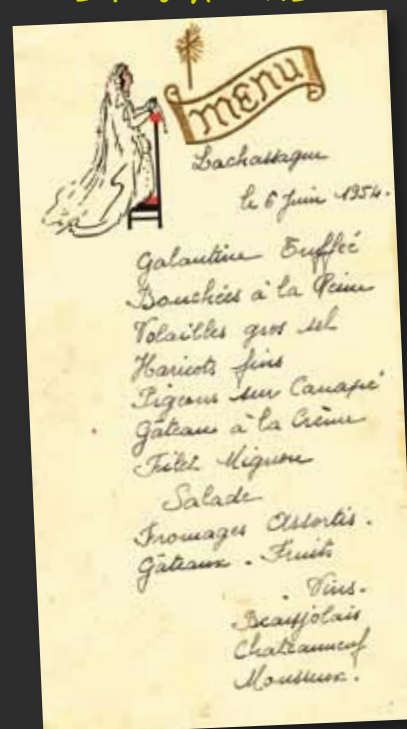 MENU
Lachassagne
le 6 Juin 1954.
Galantine Truffée
Bouchées à la Reine
Volailles gros sel
Haricots fins
Pigeons sur Canapé
Gâteau à la Crème
Filet Mignon
Salade
Fromages Assortis.
Gâteaux - Fruits
. Vins.
Beaujolais
Chateauneuf
Mousseux.